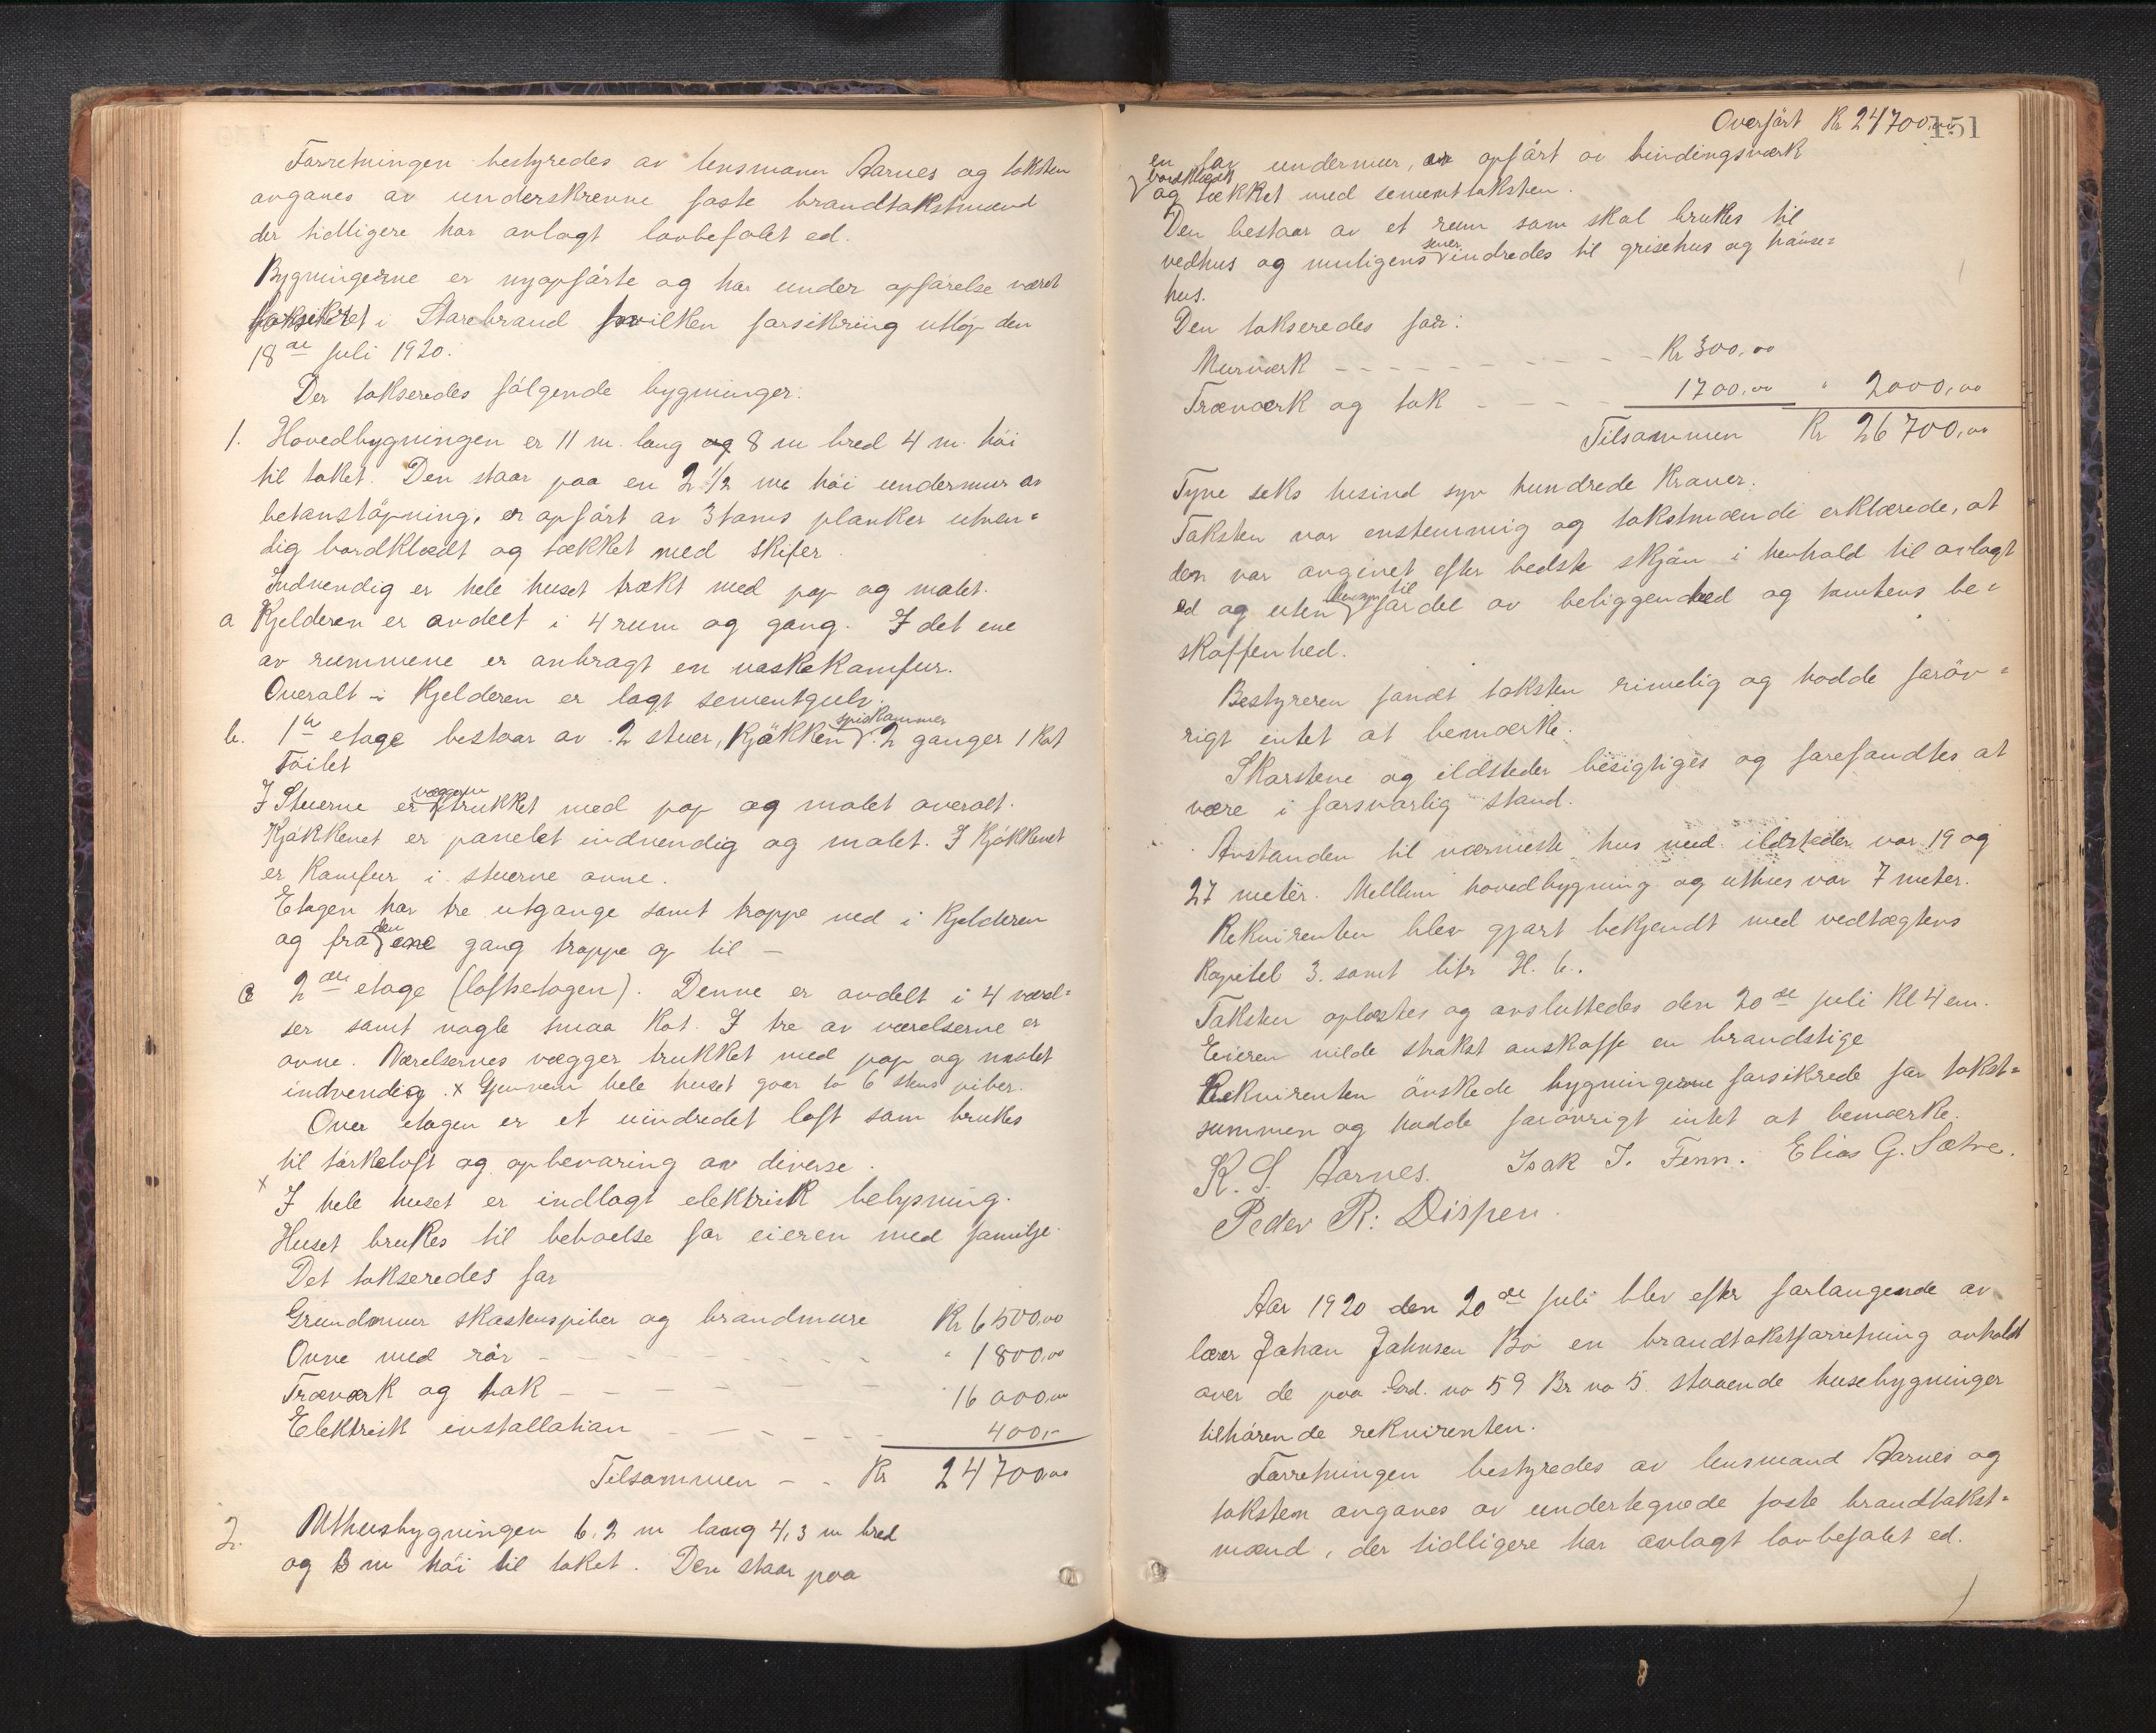 Forretningen bestyredes av lensmann Aarnes og taksten
avgaves av underskrevne faste brandtakstmænd
der tidligere har avlagt lovbefalet ed.
Bygningerne er nyopførte og har under opførelse været
forsikret i Storebrand hvilken forsikring utløp den
18de juli 1920.
Der takseredes følgende bygninger:
1. Hovedbygningen er 11 m. lang og 8 m bred 4 m. høi
til taket. Den staar paa en 2 1/2 m høi undermur av
betonstøpning, er opført av 3 toms planker utven=
dig bordklædt og tækket med skifer
Indvendig er hele huset trækt med pap og malet.
a Kjelderen er avdelt i 4 rum og gang. I det ene
av rummene er anbragt en vaskekomfur.
Overalt i Kjelderen er lagt sementgulv.
b. 1ste etage bestaar av 2 stuer, Kjøkken spiskammer 2 ganger 1 Kot
Toilet
I Stuerne er væggerne trukket med pap og malet overalt.
Kjøkkenet er panelet indvendig og malet. I Kjøkkenet
er Komfur i stuerne ovne.
Etagen har tre utgange samt trappe ned i Kjelderen
og fra den ene gang trappe op til –
c 2den etage (loftsetagen). Denne er avdelt i 4 værel=
ser samt nogle smaa Kot. I tre av værelserne er
ovne. Værelsernes vægger trukket med pap og malet
indvendig. x Gjennem hele huset gaar to 6 stens piber.
Over etagen er et uindredet loft som brukes
til tørkeloft og opbevaring av diverse.
x
I hele huset er indlagt elektrisk belysning.
Huset brukes til beboelse for eieren med familje.
Det takseredes for
Grundmur skorstenspiber og brandmure Kr 6500,00
Ovne med rør – – – – – " 1800,00
Træværk og tak – – – – – " 16000,00
Elektrisk installation – – – – – 400,-
Tilsammen – – Kr 24700,00
2. Uthusbygningen 6,2 m lang 4,3 m bred
og 3 m høi til taket. Den staar paa
Overført Kr 24700,00
151
en lav undermur, er opført av bindingsværk
bordklædt
og tækket med sementtaksten.
Den bestaar av et rum som skal brukes til
vedhus og muligens senere indredes til grisehus og hønse=
hus.
Den takseredes for:
Murværk – – – – – – – Kr 300,00
Træværk og tak – – – – 1700,00 " 2000,00
Tilsammen Kr 26700,00
Tyve seks tusind syv hundrede Kroner.
Taksten var enstemmig og takstmændene erklærede, at
den var avgivet efter bedste skjøn i henhold til avlagt
ed og uten hensyn til fordel av beliggenhed og tomtens be=
skaffenhed.
Bestyreren fandt taksten rimelig og hadde forøv=
rigt intet at bemærke.
Skorstene og ildsteder besigtiges og forefandtes at
være i forsvarlig stand.
Avstanden til nærmeste hus med ildsteder var 19 og
27 meter. Mellem hovedbygning og uthus var 7 meter.
Rekvirenten blev gjort bekjendt med vedtægtens
Kapitel 3. samt litr H. b.
Taksten oplæstes og avsluttedes den 20de juli Kl 4 em.
Eieren vilde strakst anskaffe en brandstige
Rekvirenten ønskede bygningerne forsikrede for takst=
summen og hadde forøvrigt intet at bemærke.
K. S. Aarnes. Isak J. Fenn. Elias G. Sætre.
Peder R. Dispen.
Aar 1920 den 20de juli blev efter forlangende av
lærer Johan Johnsen Bø en brandtakstforretning avholdt
over de paa Grd. no 59 Br no 5 staaende husebygninger
tilhørende rekvirenten.
Forretningen bestyredes av lensmand Aarnes og
taksten avgaves av undertegnede faste brandtakst=
mænd, der tidligere har avlagt lovbefalet ed.